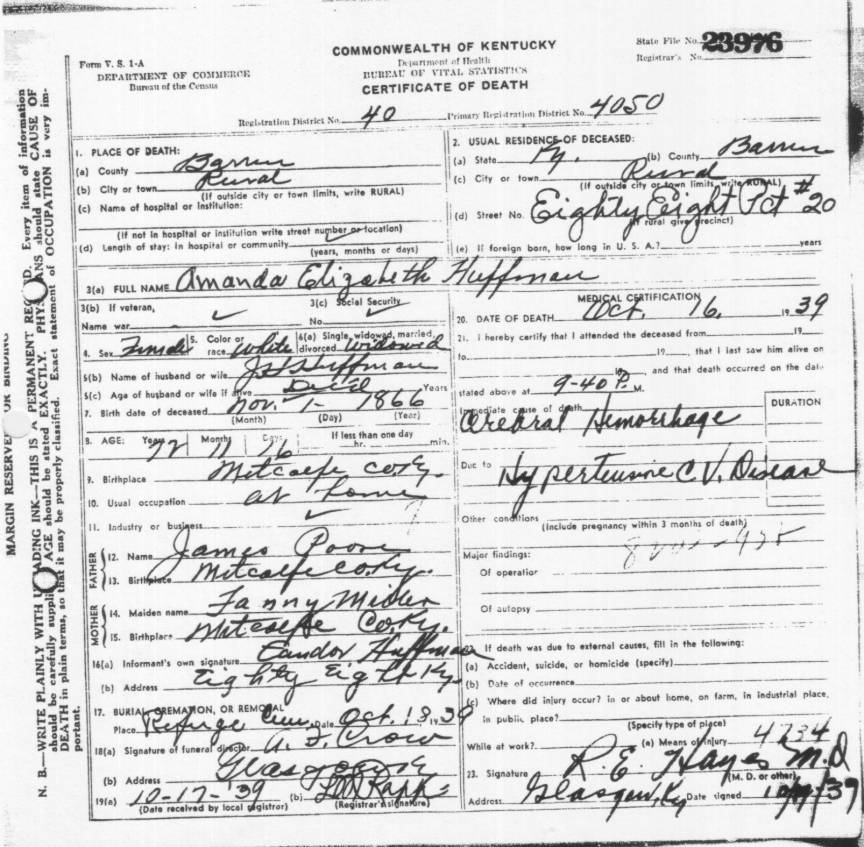 COMMONWEALTH OF KENTUCKY
Department of Health
BUREAU OF VITAL STATISTICS
CERTIFICATE OF DEATH
Form V. S. 1-A
DEPARTMENT OF COMMERCE
Bureau of the Census
State File No. 23976
Registrar's No.
Registration District No. 40 Primary Registration District No. 4050
MARGIN RESERVED FOR BINDING
N. B.—WRITE PLAINLY WITH UNFADING INK—THIS IS A PERMANENT RECORD. Every item of information
should be carefully supplied. AGE should be stated EXACTLY. PHYSICIANS should state CAUSE OF
DEATH in plain terms, so that it may be properly classified. Exact statement of OCCUPATION is very im-
portant.
1. PLACE OF DEATH:
(a) County Barren
(b) City or town Rural
(If outside city or town limits, write RURAL)
(c) Name of hospital or Institution:
(If not in hospital or institution write street number or location)
(d) Length of stay: In hospital or community
(years, months or days)
2. USUAL RESIDENCE OF DECEASED:
(a) State Ky. (b) County Barren
(c) City or town Rural
(If outside city or town limits, write RURAL)
(d) Street No. Eighty Eight Pct #20
(If rural give precinct)
(e) If foreign born, how long in U. S. A.? years
3(a) FULL NAME Amanda Elizabeth Huffman
3(b) If veteran,
Name war
3(c) Social Security
No.
4. Sex Female 5. Color or race White 6(a) Single, widowed, married, divorced Widowed
6(b) Name of husband or wife Huffman
6(c) Age of husband or wife if alive Dec'd Years
7. Birth date of deceased Nov. 1- 1866
(Month) (Day) (Year)
8. AGE: Years 72 Months 11 Days 16 If less than one day
hr. min.
9. Birthplace Metcalfe Co. Ky.
10. Usual occupation at home
11. Industry or business
FATHER
12. Name James Poore
13. Birthplace Metcalfe Co. Ky.
MOTHER
14. Maiden name Fanny
15. Birthplace Metcalfe Co. Ky.
16(a) Informant's own signature Candor Huffman
(b) Address Eighty Eight Ky.
17. BURIAL, CREMATION, OR REMOVAL
Place Refuge Cem. Date Oct. 18, 1939
18(a) Signature of funeral director A. F. Crow
(b) Address Glasgow Ky
19(a) 10-17-'39 (b) Rapp
(Date received by local registrar) (Registrar's signature)
MEDICAL CERTIFICATION
20. DATE OF DEATH Oct. 16, 1939
21. I hereby certify that I attended the deceased from 19
to 19, that I last saw him alive on
19, and that death occurred on the date
stated above at 9-40 P. M.
Immediate cause of death
DURATION
Cerebral Hemorrhage
Due to Hypertensive C. V. Disease
Other conditions
(Include pregnancy within 3 months of death)
Major findings:
Of operation
Of autopsy
22. If death was due to external causes, fill in the following:
(a) Accident, suicide, or homicide (specify)
(b) Date of occurrence
(c) Where did injury occur? in or about home, on farm, in industrial place,
in public place?
(Specify type of place)
While at work? (e) Means of injury 4734
23. Signature R. E. Hayes M.D
(M. D. or other)
Address Glasgow, Ky Date signed